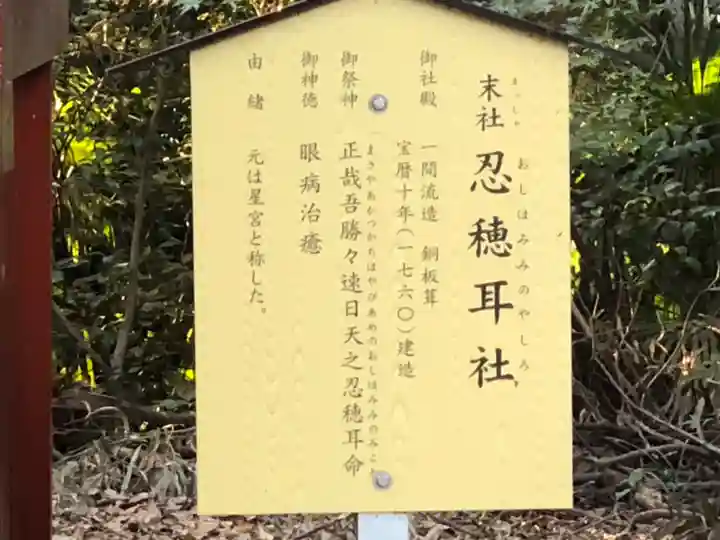 まっしゃ
末社
おしほみみのやしろ
忍穂耳社
御社殿 一間流造 銅板葺
宝暦十年(一七六〇)建造
御祭神 正哉吾勝々速日天之忍穂耳命
まさやあかつかちはやびあめのおしほみみのみこと
御神徳 眼病治癒
由緒 元は星宮と称した。